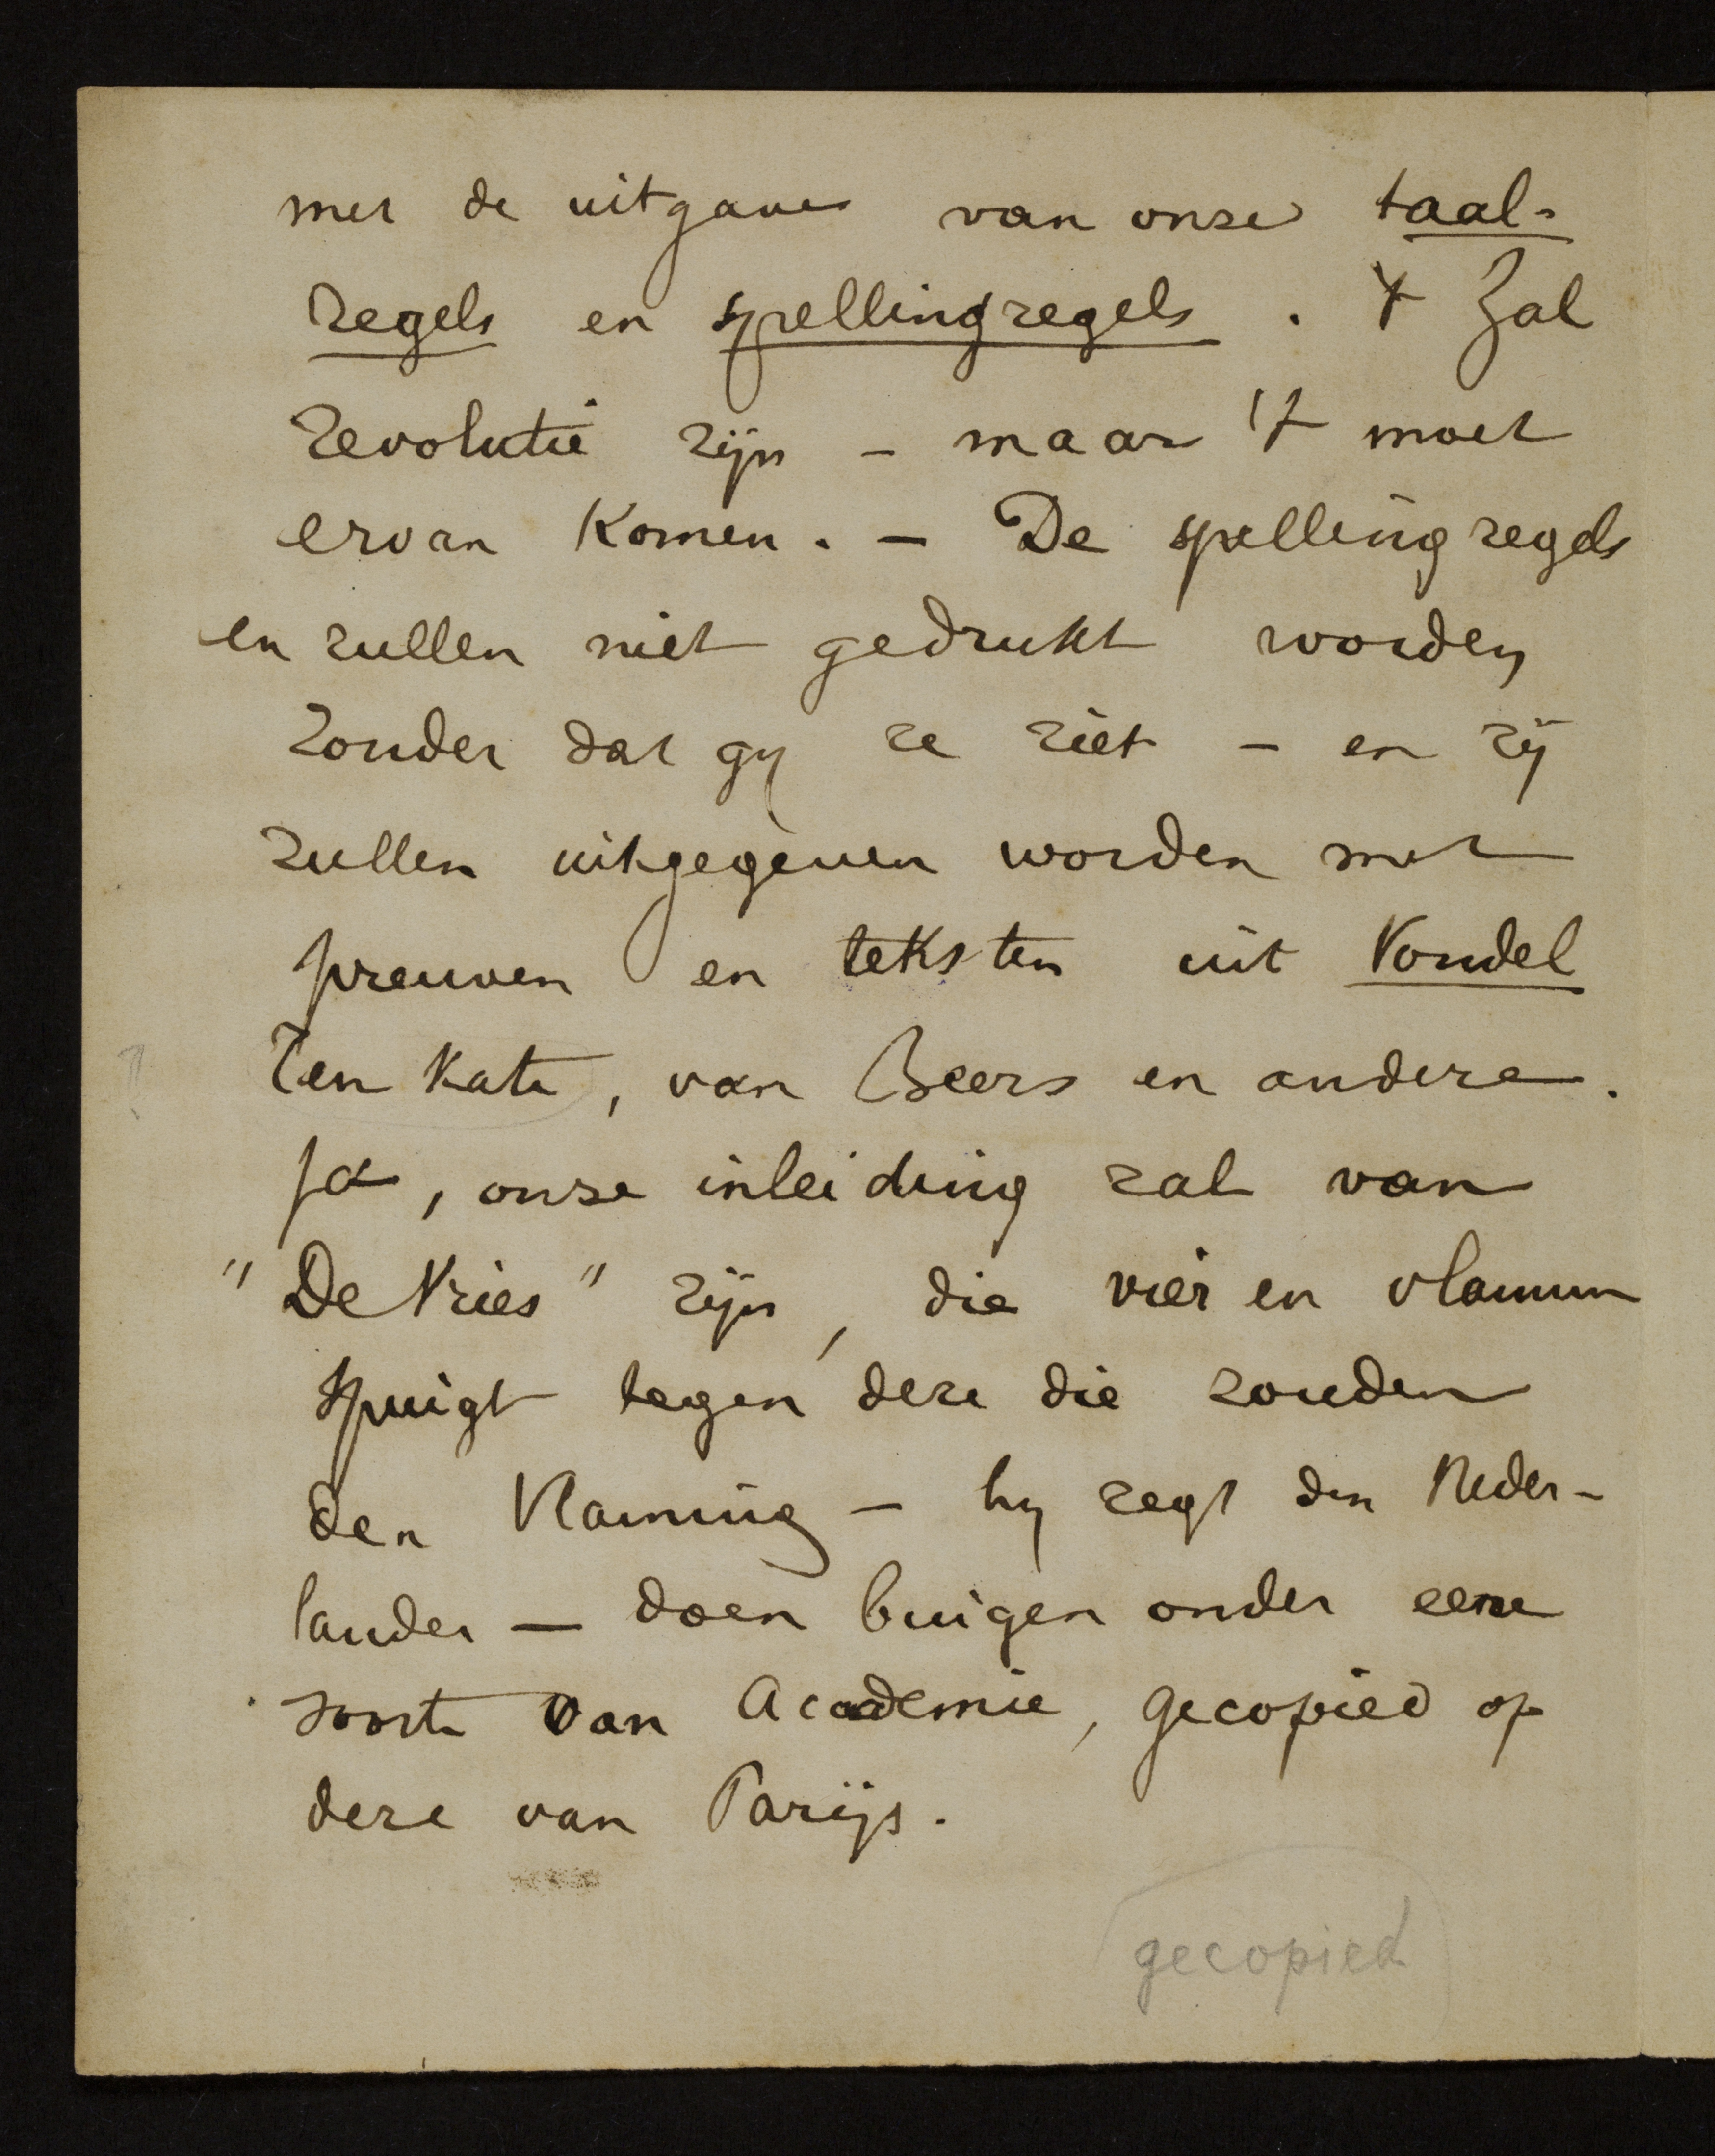 met de uitgave van onze taal-
regels en spellingregels. 't Zal
revolutie zijn - maar 't moet
ervan komen. - De spellingregels
en zullen niet gedrukt worden
zonder dat gy ze ziet - en zij
zullen uitgegeven worden met
preuven en teksten uit Vondel
Ten Kate, van Beers en andere.
Ja, onze inleiding zal van
"De Vries" zijn, die vier en vlammen
spuigt tegen deze die zouden
den Vlaming - hy zegt den Neder-
lander - doen buigen onder eene
soorte van Academie, gecopied op
deze van Parijs.
gecopied